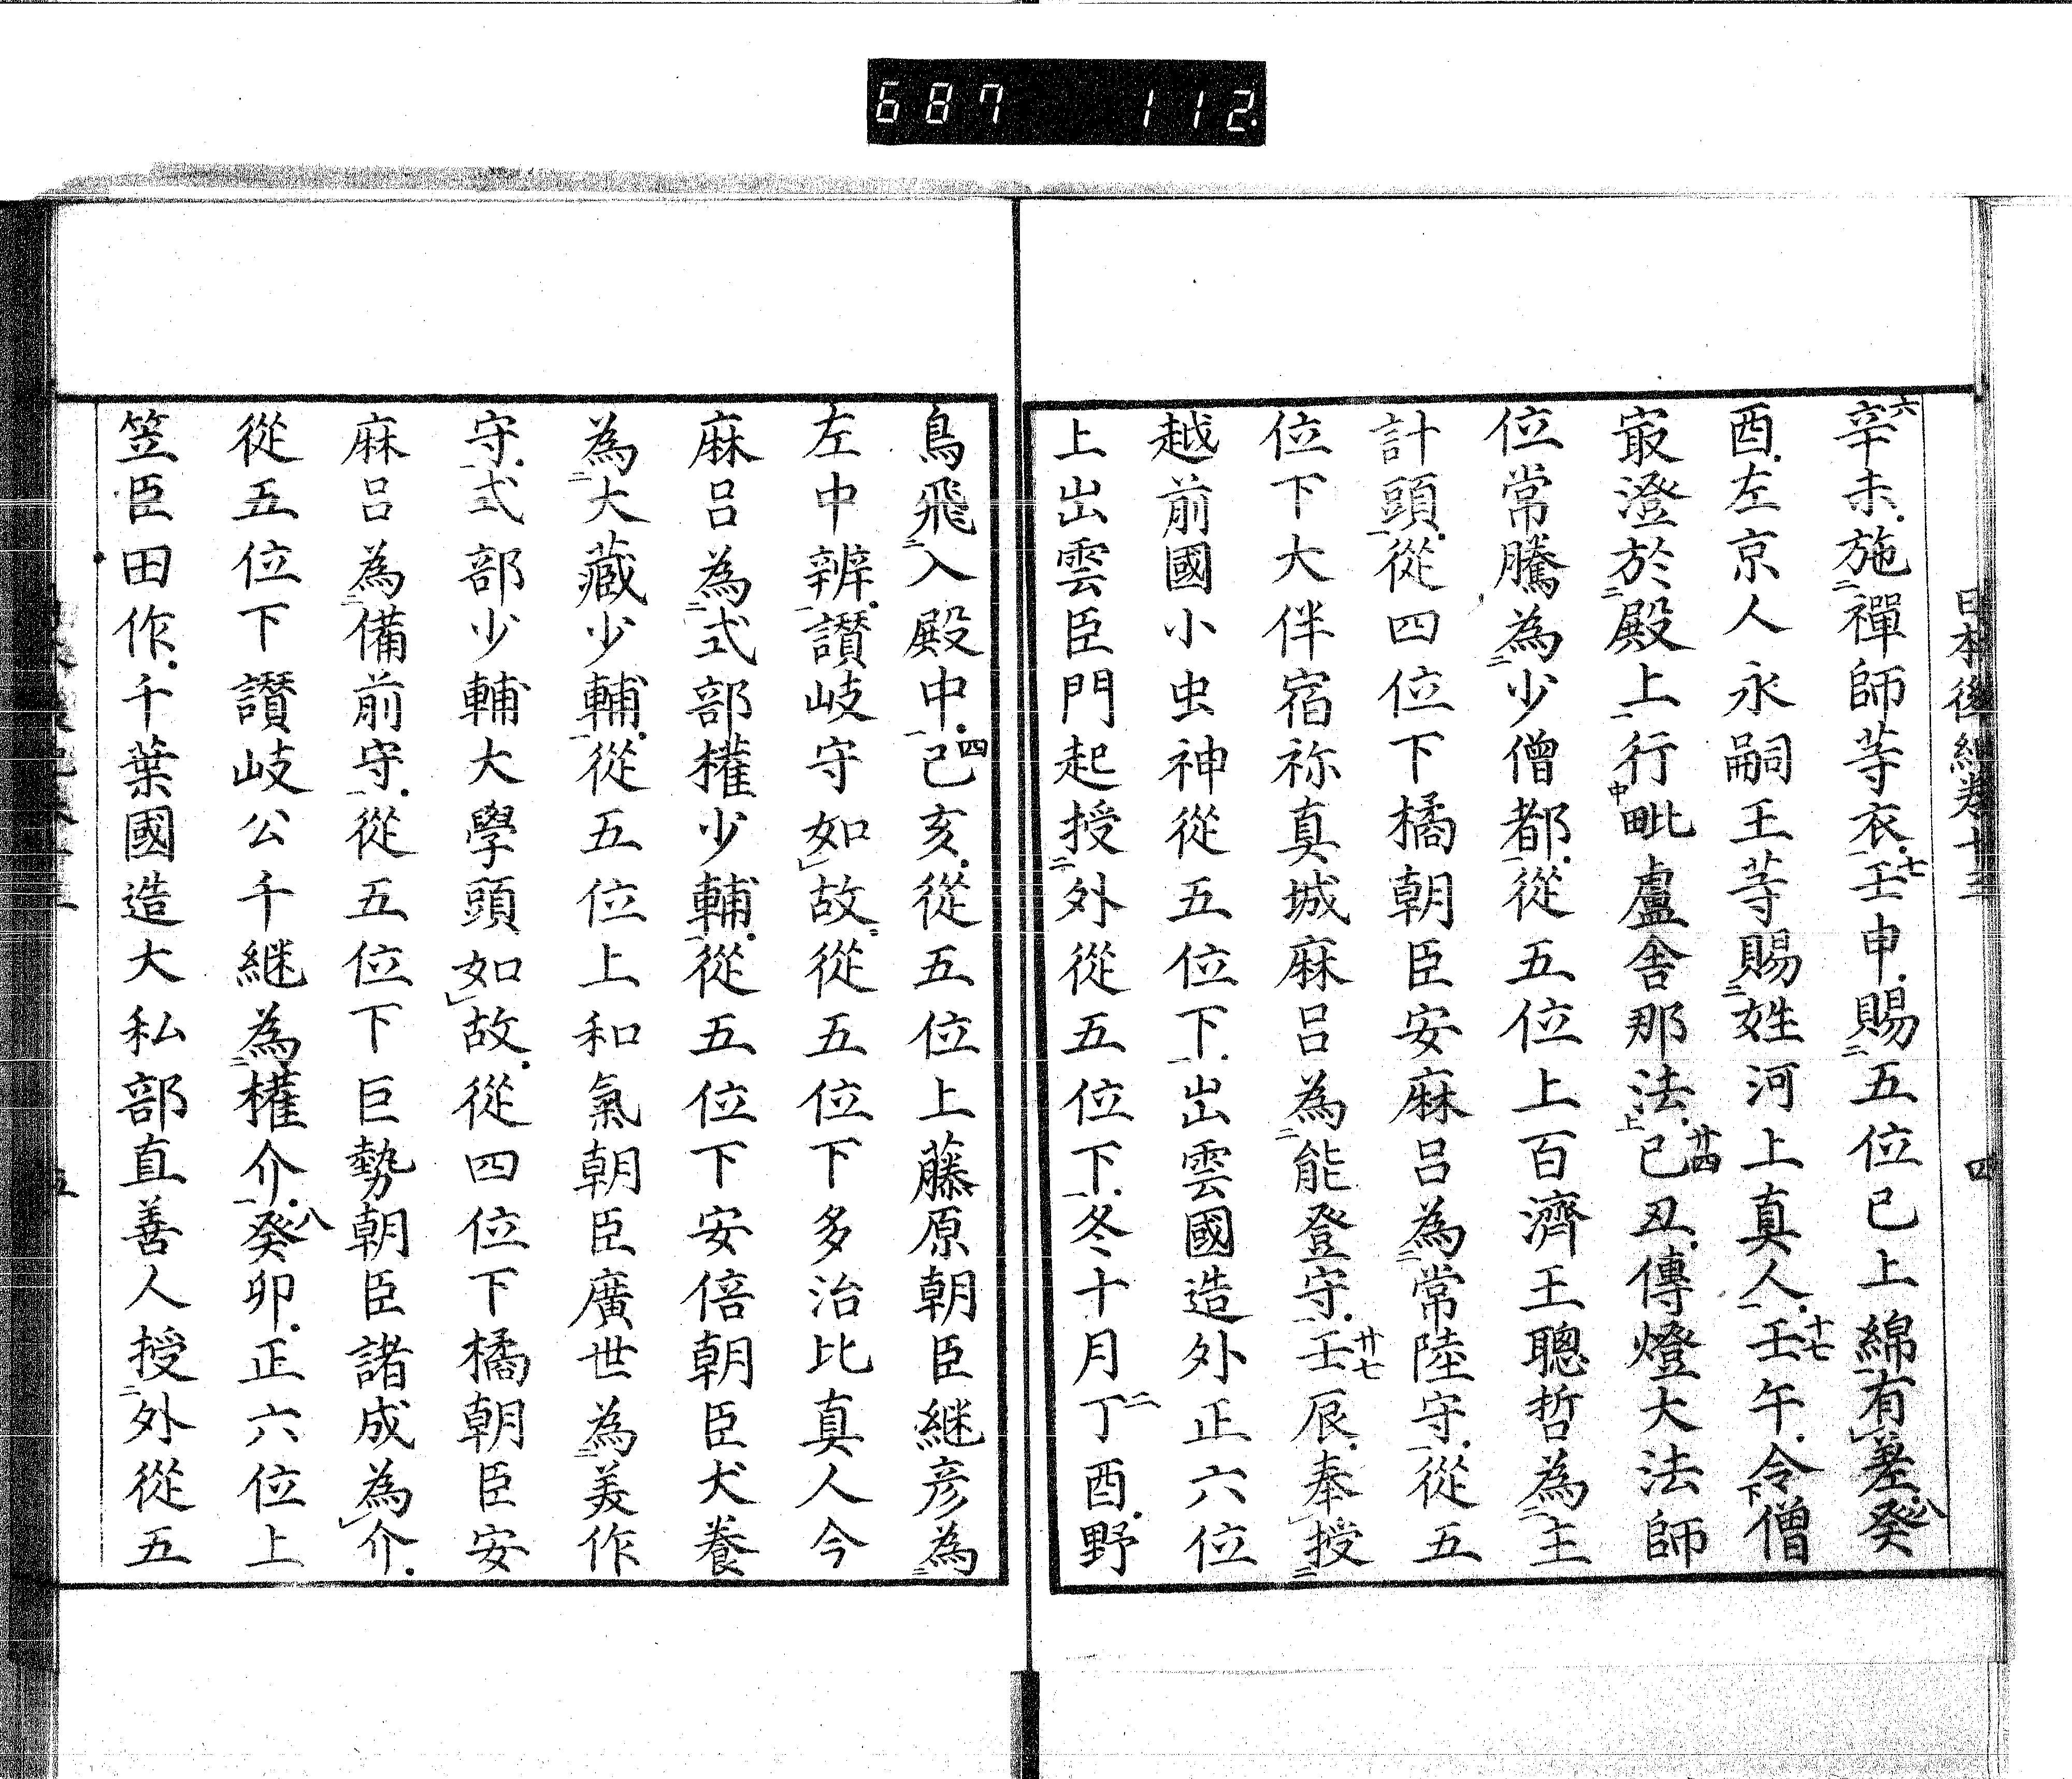 687 112
日本後紀卷十三 四
辛六未施二禪師等衣一壬七申賜二五位已上綿一有レ差癸八
酉左京人永嗣王等賜二姓河上真人一壬十七午令下僧
冣澄於二殿上一行中毗盧舍那法上己廿四丑傳燈大法師
位常騰為二少僧都一從五位上百濟王聰哲為二主
計頭一從四位下橘朝臣安麻呂為二常陸守一從五
位下大伴宿祢真城麻呂為二能登守一壬廿七辰奉レ授二
越前國小虫神從五位下一出雲國造外正六位
上出雲臣門起授二外從五位下一冬十月丁二酉野
鳥飛二入殿中一己四亥從五位上藤原朝臣継彦為二
左中辨一讃岐守如レ故從五位下多治比真人今
麻呂為二式部權少輔一從五位下安倍朝臣犬養
為二大藏少輔一從五位上和氣朝臣廣世為二美作
守一式部少輔大學頭如レ故從四位下橘朝臣安
麻呂為二備前守一從五位下巨勢朝臣諸成為レ介
從五位下讃岐公千継為二權介一癸八卯正六位上
笠臣田作千葉國造大私部直善人授二外從五
五